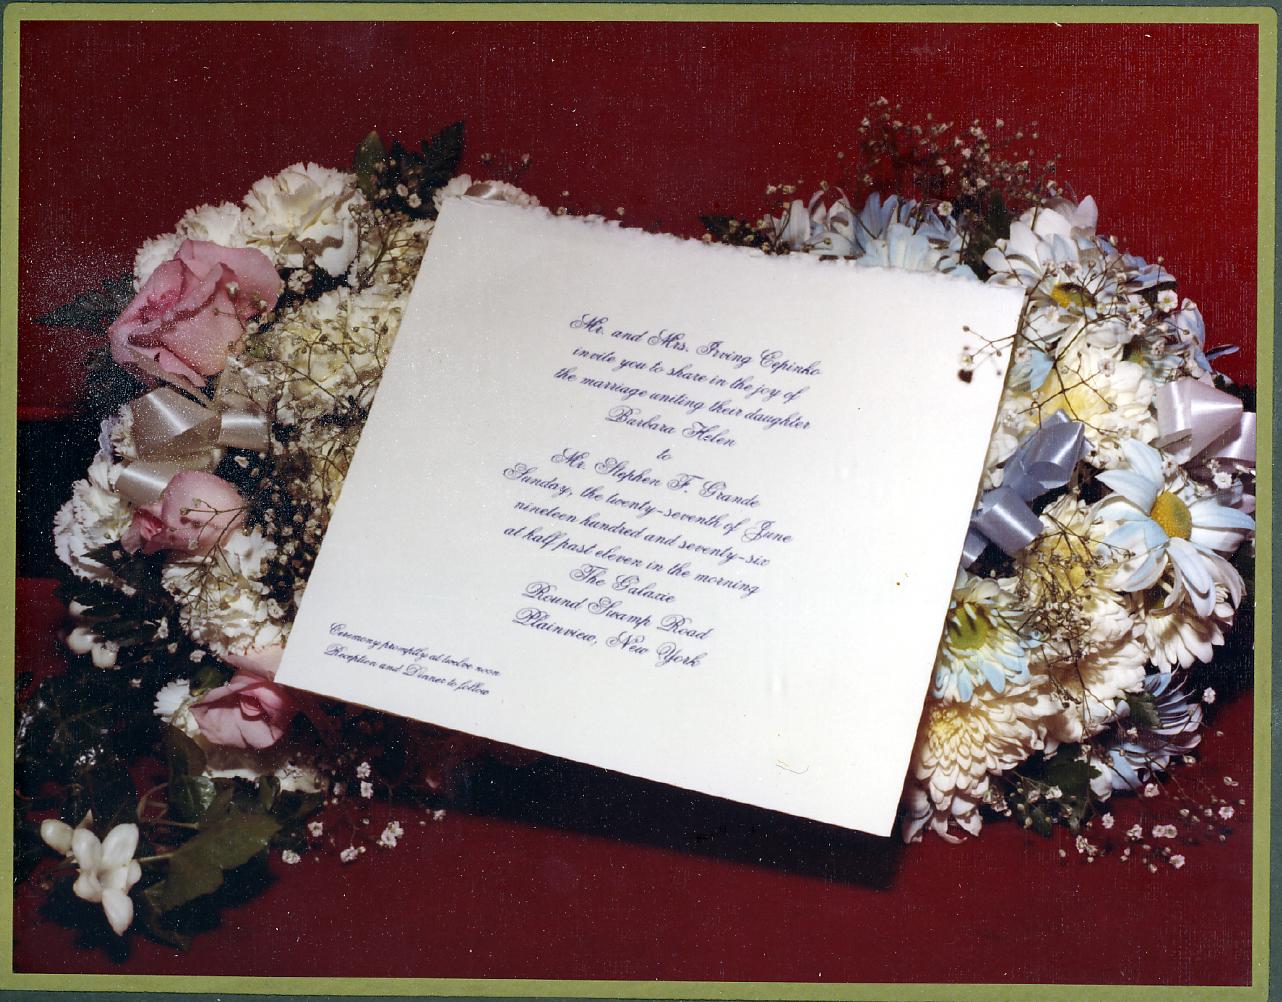 Mr. and Mrs. Irving Cepinko
invite you to share in the joy of
the marriage uniting their daughter
Barbara Helen
to
Mr. Stephen F. Grande
Sunday, the twenty-seventh of June
nineteen hundred and seventy-six
at half past eleven in the morning
The Galaxie
Round Swamp Road
Plainview, New York
Ceremony promptly at twelve noon
Reception and Dinner to follow